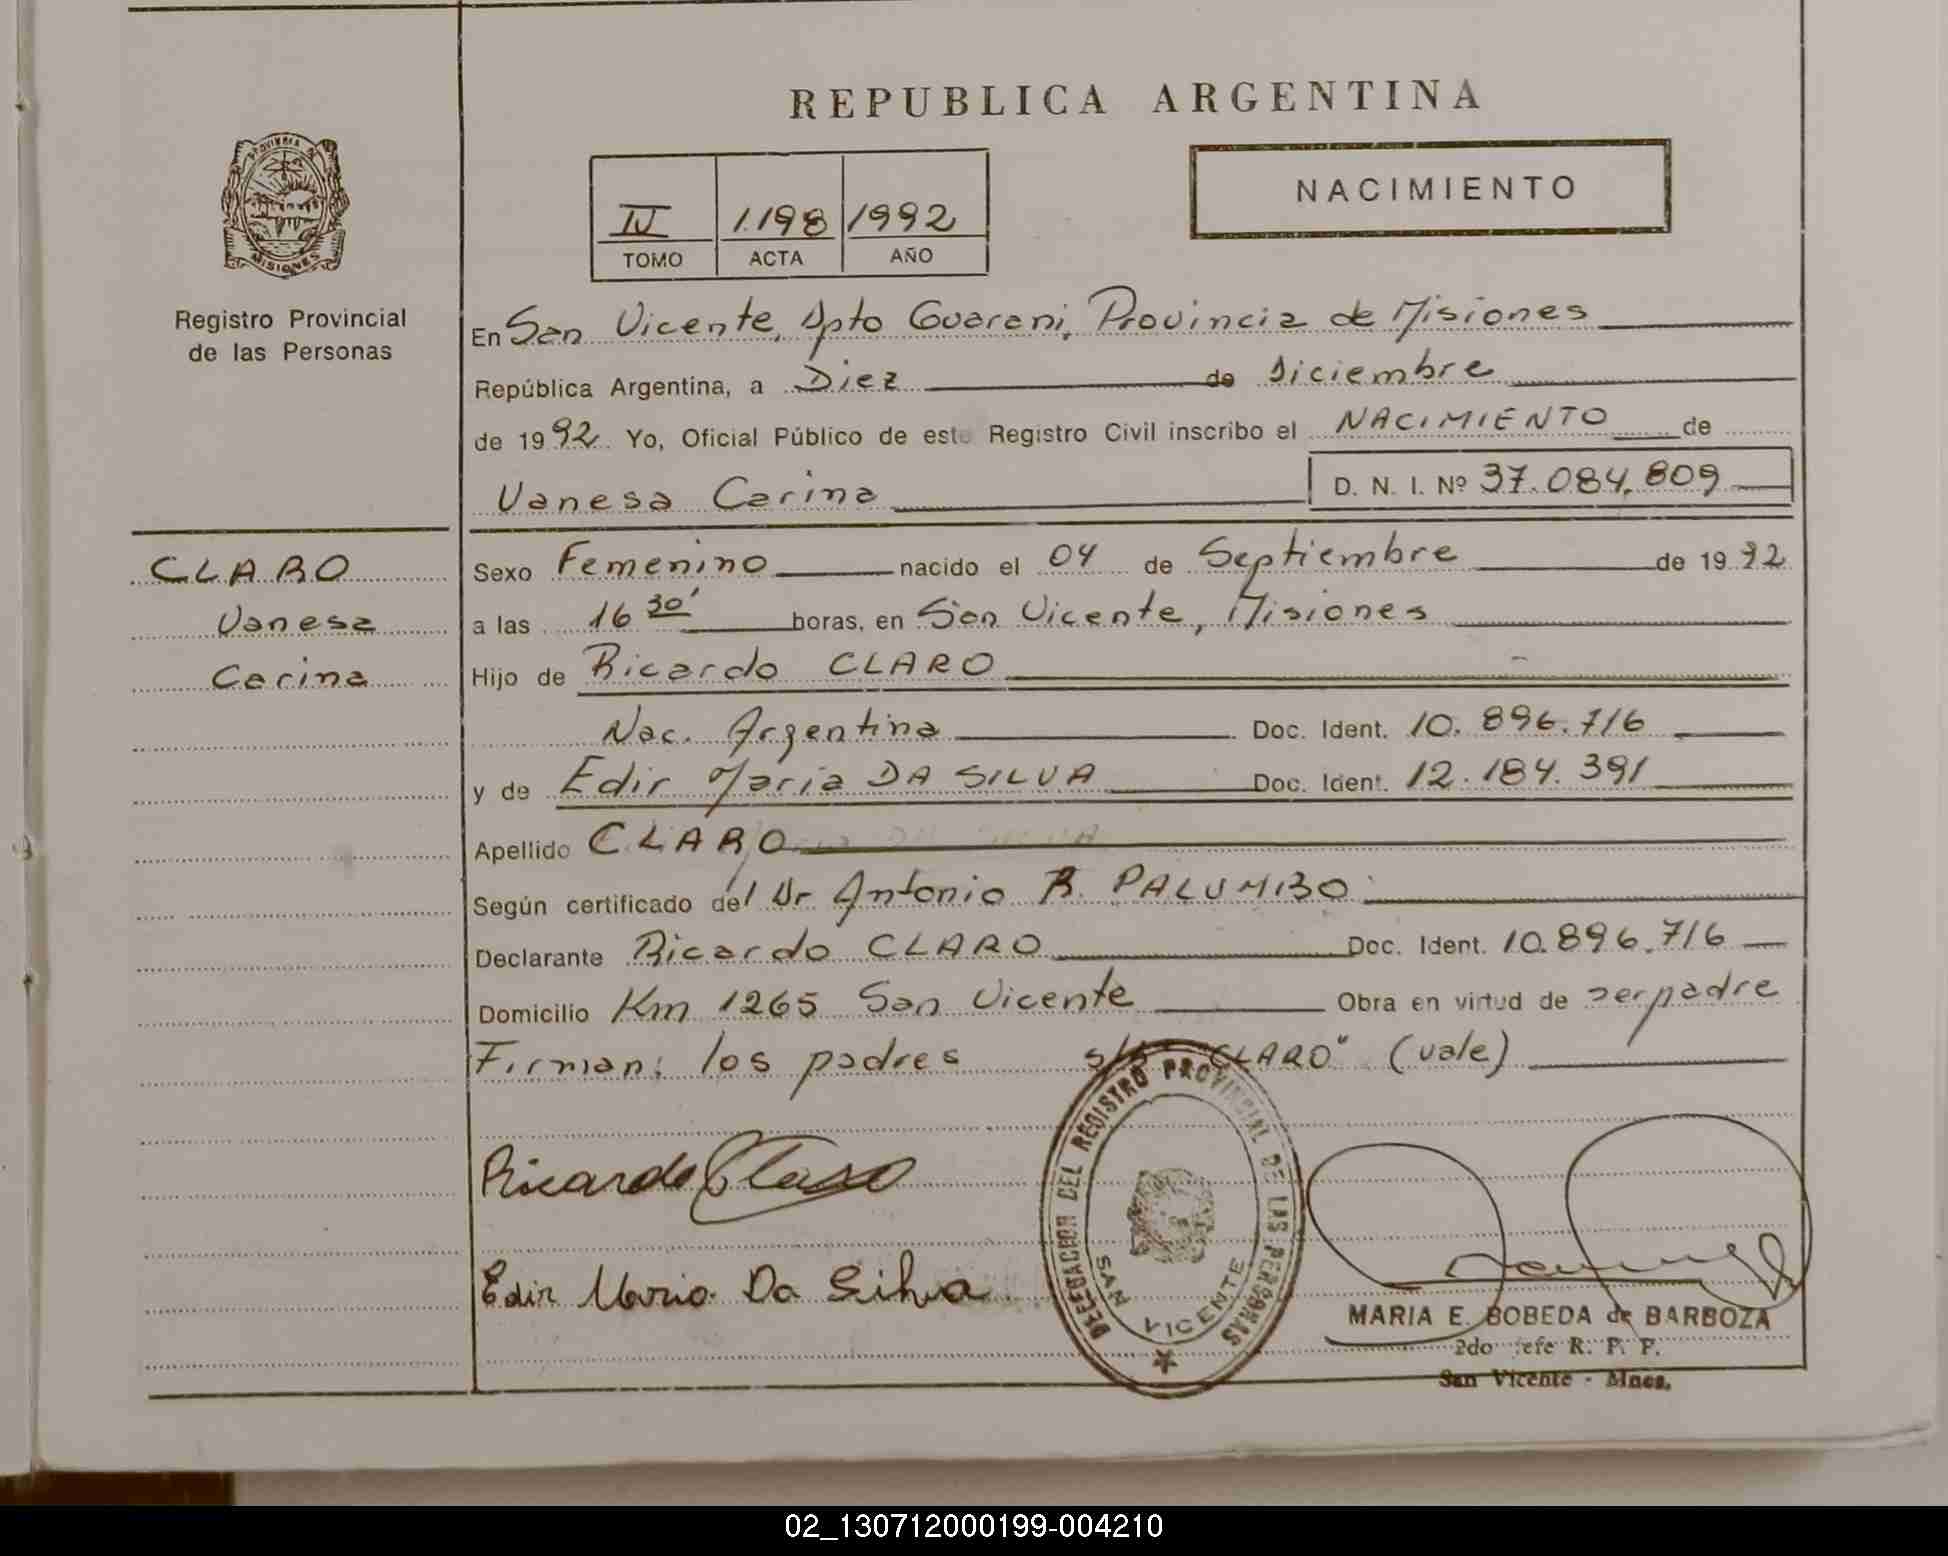 REPUBLICA ARGENTINA
PROVINCIA DE
MISIONES
Registro Provincial
de las Personas
NACIMIENTO
IV 1.198 1992
TOMO ACTA AÑO
En San Vicente, Dpto Guarani, Provincia de Misiones
República Argentina, a Diez de Diciembre
de 1992 Yo, Oficial Público de este Registro Civil inscribo el NACIMIENTO de
Vanesa Carina D. N. I. Nº 37.084.809
CLARO
Vanesa
Carina
Sexo Femenino nacido el 04 de Septiembre de 1992
a las 16 30' horas, en San Vicente, Misiones
Hijo de Ricardo CLARO
Nac. Argentina Doc. Ident. 10.896.716
y de Edir Maria DA SILVA Doc. Ident. 12.184.391
Apellido CLARO
Según certificado del Dr Antonio R. PALUMBO
Declarante Ricardo CLARO Doc. Ident. 10.896.716
Domicilio Km 1265 San Vicente Obra en virtud de ser padre
Firman: los padres "CLARO" (vale)
Ricardo Claro
Edir Maria Da Silva
DELEGACION DEL REGISTRO PROVINCIAL DE LAS PERSONAS
SAN VICENTE
MARIA E. BOBEDA de BARBOZA
2do Jefe R. P. P.
San Vicente - Mnes.
02_130712000199-004210